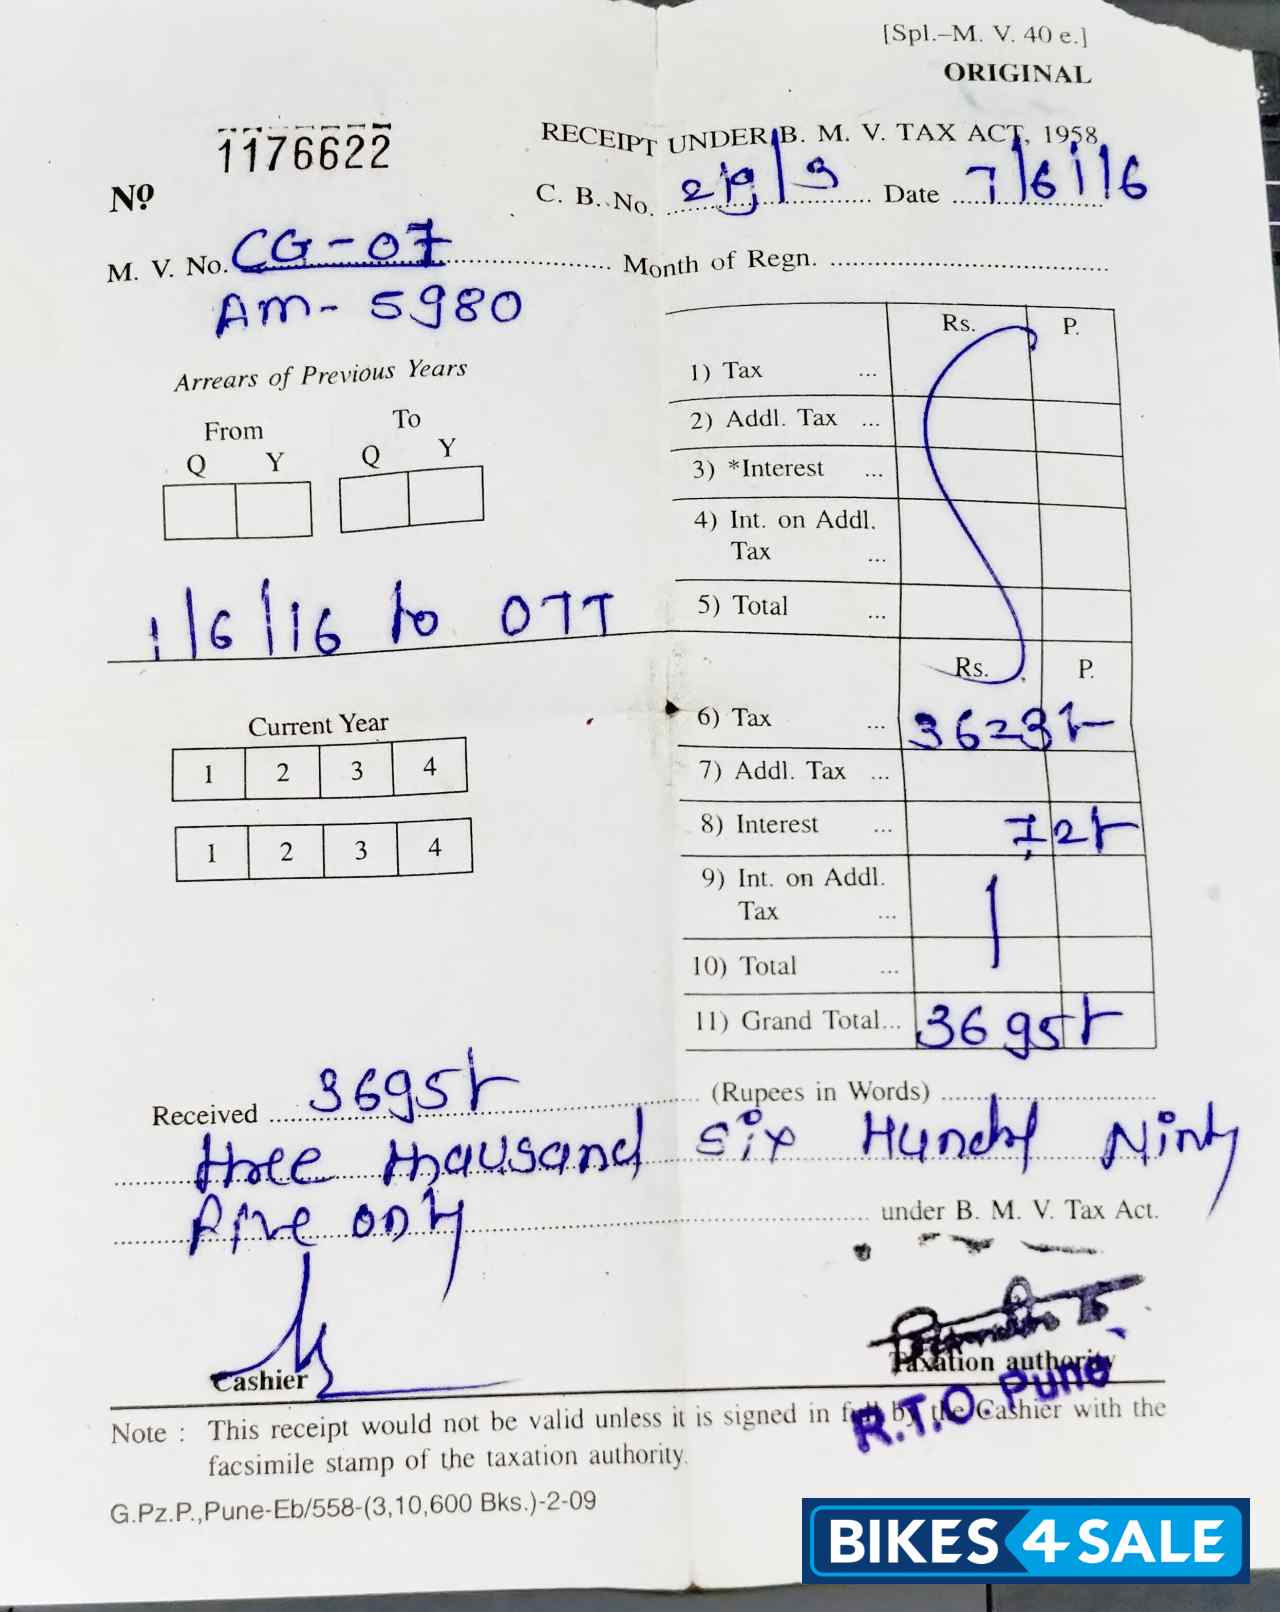 [Spl.–M. V. 40 e.]
ORIGINAL
1176622
RECEIPT UNDER B. M. V. TAX ACT, 1958
No
C. B. No. 219/9 Date 7/6/16
M. V. No. CG-07 Month of Regn.
AM- 5980
Arrears of Previous Years
From To
Q Y Q Y
Rs. P.
1) Tax ...
2) Addl. Tax ...
3) *Interest ...
4) Int. on Addl.
Tax ...
5) Total ...
1/6/16 to OTT
Rs. P.
Current Year
1 2 3 4
1 2 3 4
6) Tax ... 3623/-
7) Addl. Tax ...
8) Interest ... 72/-
9) Int. on Addl.
Tax ...
10) Total ...
11) Grand Total... 3695/-
Received 3695/- (Rupees in Words)
three thausand six Hundred Ninty
five only under B. M. V. Tax Act.
Cashier Taxation authority
R.T.O. Pune
Note : This receipt would not be valid unless it is signed in full by the Cashier with the
facsimile stamp of the taxation authority.
G.Pz.P.,Pune-Eb/558-(3,10,600 Bks.)-2-09
BIKES4SALE